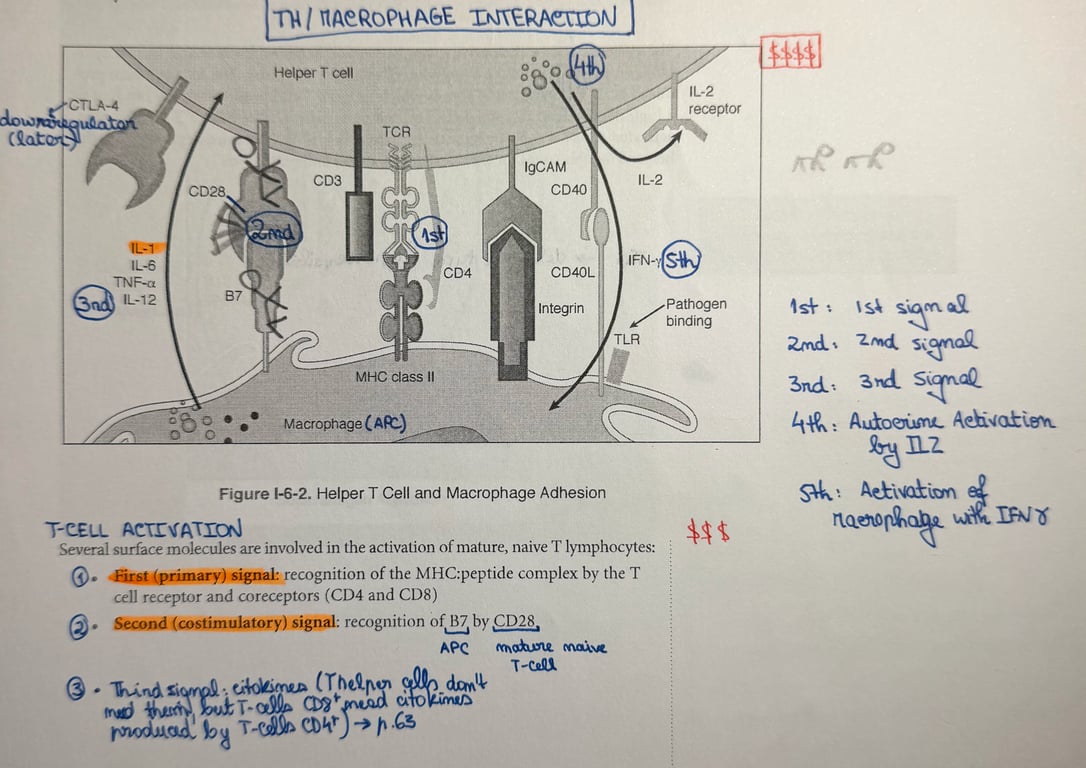 TH/MACROPHAGE INTERACTION
$$$$
Helper T cell
4th
CTLA-4
downregulator
(later)
IL-2
receptor
TCR
CD3
IgCAM
CD40
IL-2
CD28
2nd
1st
IL-1
IL-6
TNF-α
IL-12
3nd
B7
CD4
CD40L
IFN-γ
5th
Integrin
Pathogen
binding
TLR
MHC class II
Macrophage (APC)
1st: 1st signal
2nd: 2nd signal
3nd: 3nd Signal
4th: Autocrine Activation
by IL2
5th: Activation of
macrophage with IFNγ
Figure I-6-2. Helper T Cell and Macrophage Adhesion
T-CELL ACTIVATION
$$$
Several surface molecules are involved in the activation of mature, naive T lymphocytes:
1 • First (primary) signal: recognition of the MHC:peptide complex by the T
cell receptor and coreceptors (CD4 and CD8)
2 • Second (costimulatory) signal: recognition of B7 by CD28
APC mature naive
T-cell
3 • Third signal: citokines (T helper cells don't
need them, but T-cells CD8+ need citokines
produced by T-cells CD4+) → p.63